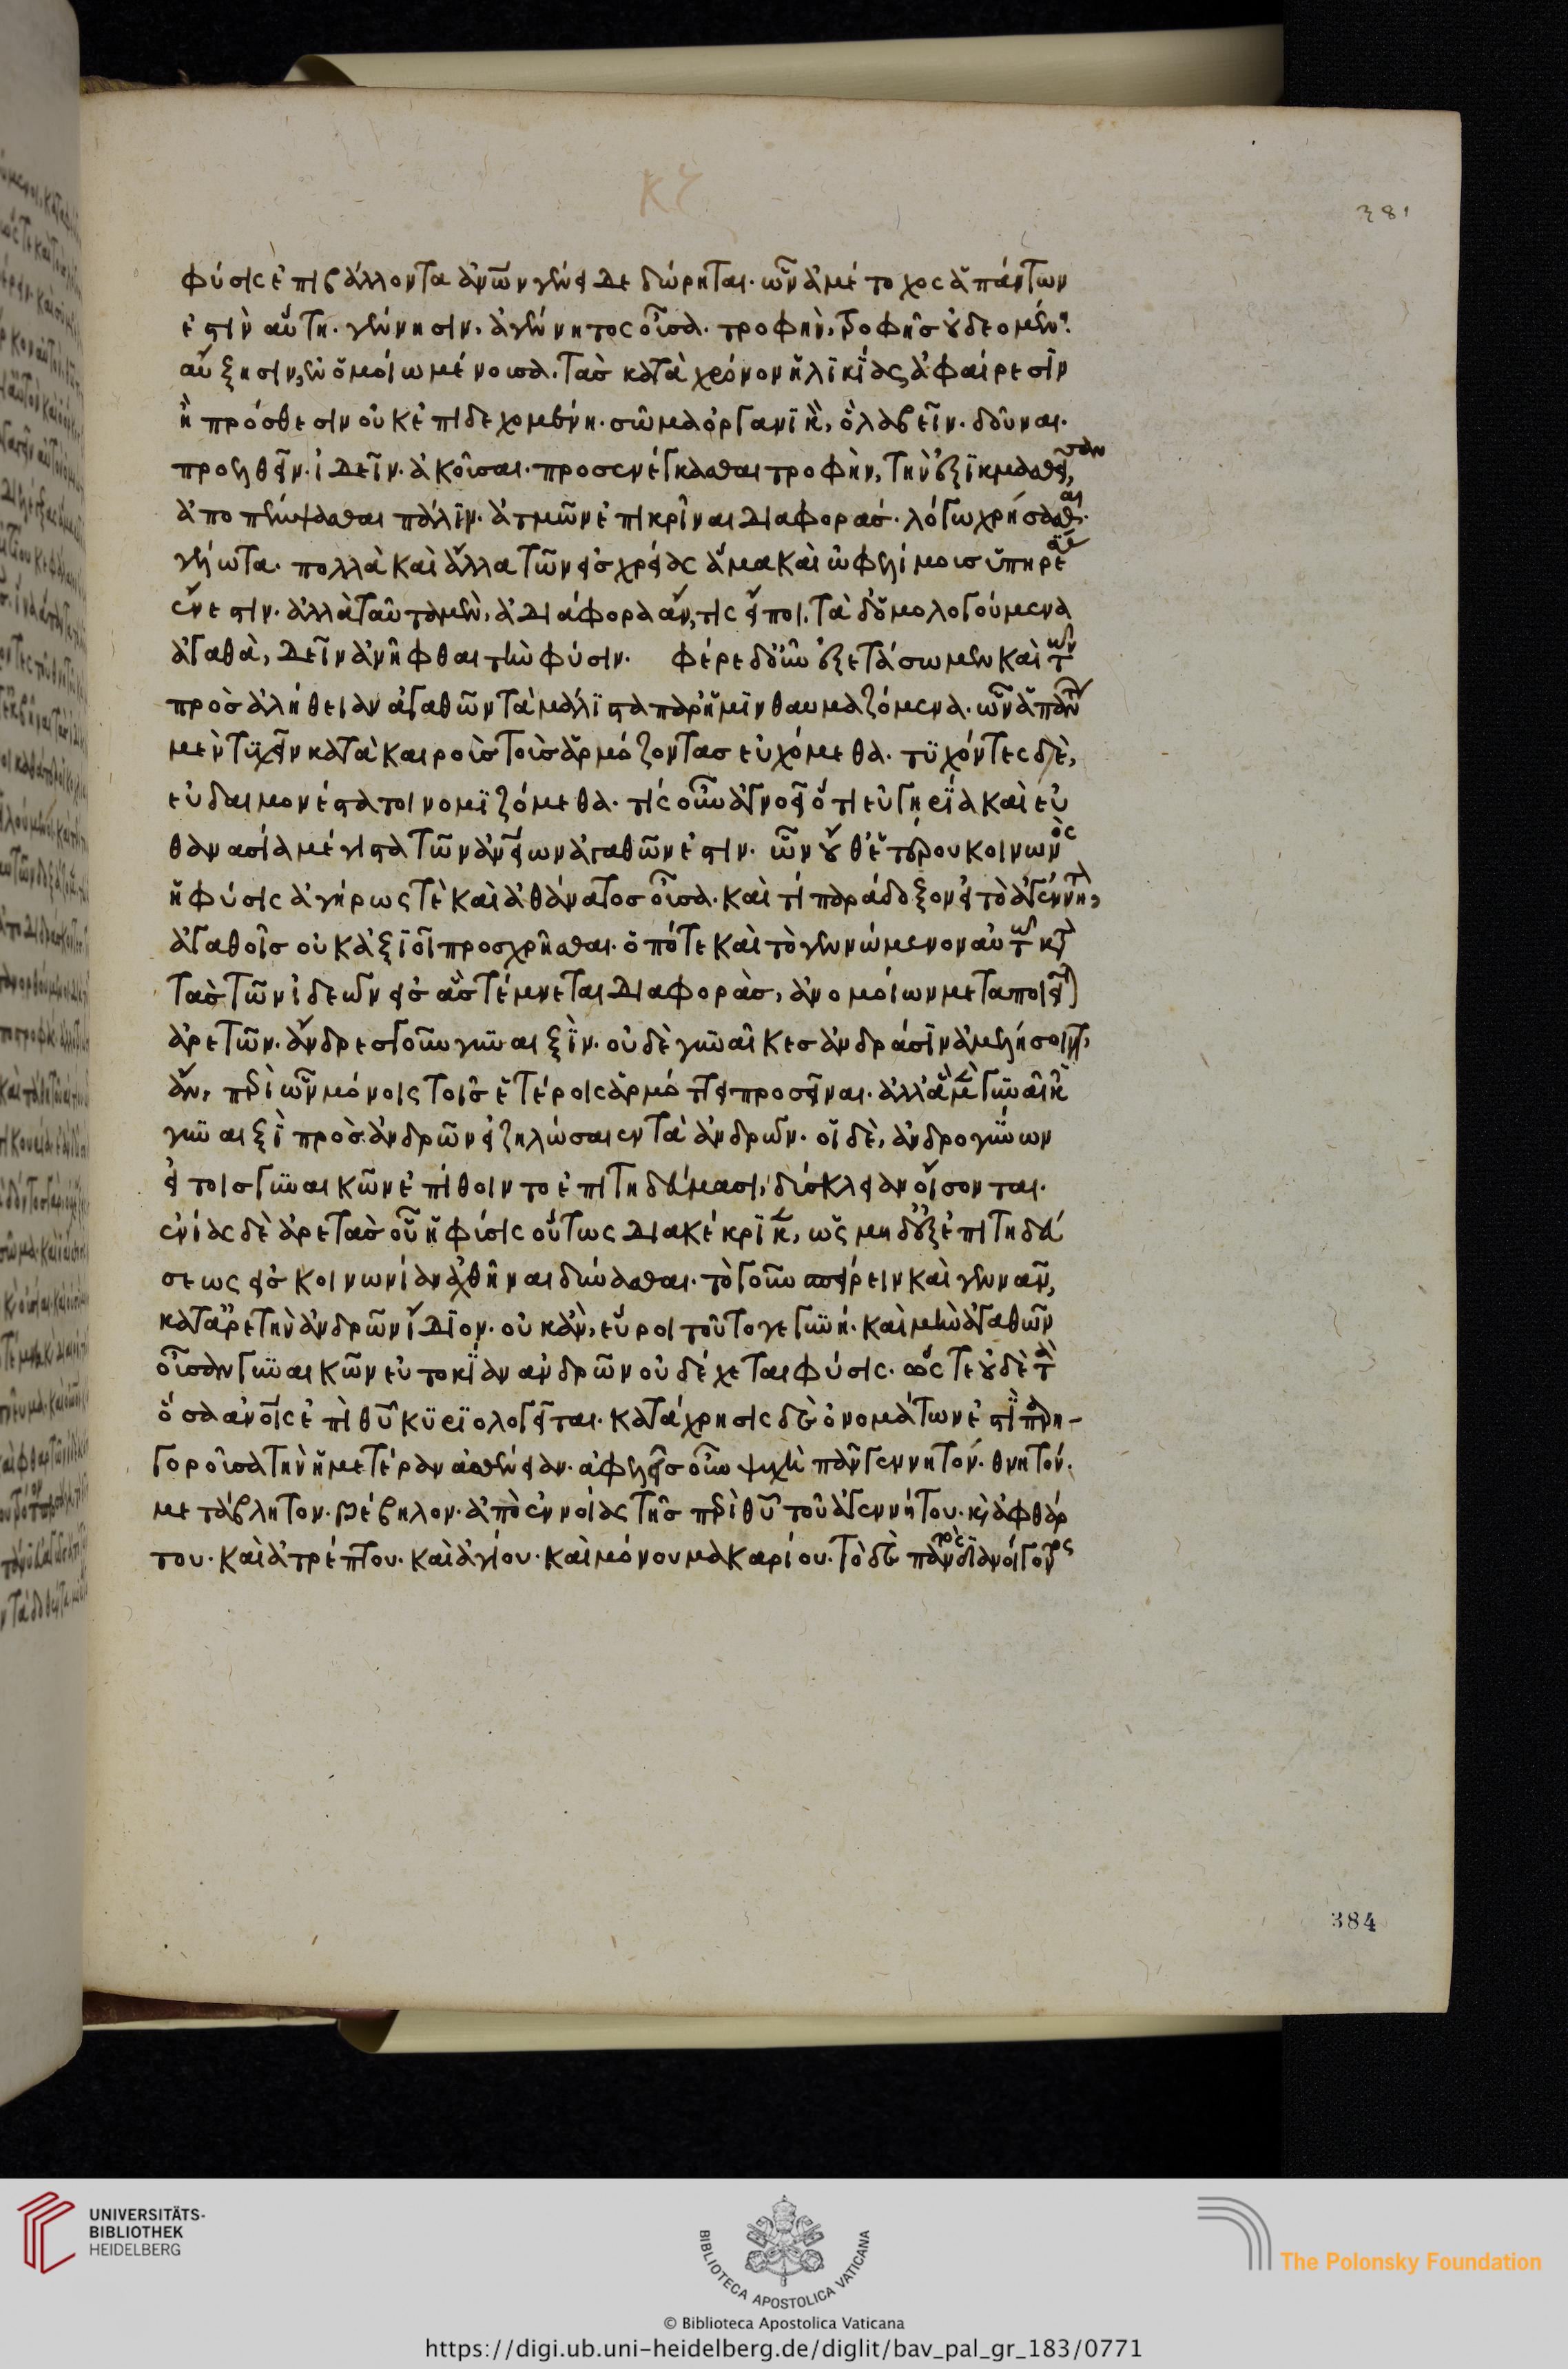 κζ
381
φύσις ἐπιβάλλοντα ἀνων γένει δεδώρηται· ὧν ἀμέτοχος ἁπάντων
ἐστὶν αὕτη· γέννησιν, ἀγέννητος οὖσα· τροφὴν, τροφῆς οὐ δεομένη·
αὔξησιν, ἐν ὁμοίω μένουσα. τὰς κατὰ χρόνον ἡλικίας, ἀφαίρεσιν
ἢ πρόσθεσιν οὐκ ἐπιδεχομένη· σῶμα ὀργανικὸν, ὃ λαβεῖν· δοῦναι·
προελθεῖν· ἰδεῖν· ἀκοῦσαι· προσενέγκασθαι τροφὴν, τὴν ἐξικμασθεῖσαν,
ἀποπέμψασθαι πάλιν· ἀτμῶν ἐπικρῖναι διαφοράς· λόγω χρήσασθαι·
πολλὰ καὶ ἄλλα τῶν εἰς χρείας ἅμα καὶ ὠφελίμους ὑπηρε
ἔνεστιν· ἀλλὰ ταῦτα μὲν, ἀδιάφορα ἄν, τις εἴποι. τὰ δ' ὁμολογούμενα
ἀγαθὰ, δεῖν ἀνῆφθαι τὴν φύσιν· φέρε δ' οὖν ἐξετάσωμεν καὶ τῶν
πρὸς ἀλήθειαν ἀγαθῶν τὰ μάλιστα παρ' ἡμῖν θαυμαζόμενα· ὧν ἁπάντων
μὲν τυχεῖν κατὰ καιροὺς τοὺς ἁρμόζοντας εὐχόμεθα· τυχόντες δὲ,
εὐδαιμονέστατοι νομιζόμεθα· τίς οὖν ἀγνοεῖ ὅτι εὐγηρία καὶ εὐ
θανασία μέγιστα τῶν ἀνθρωπείων ἀγαθῶν ἐστιν· ὧν οὐθ' ἑτέρου κοινωνὸς
ἡ φύσις ἀγήρως τὲ καὶ ἀθάνατος οὖσα· καὶ τί παράδοξον εἰ τὸ ἀγέννητον
ἀγαθοῖς οὐκ ἀξιοῖ προσχρῆσθαι· ὁπότε καὶ τὸ γεννώμενον αὐτῶν κατὰ
τὰς τῶν ἰδεῶν εἰς ἃς τέμνεται διαφορὰς, ἀνομοίων μεταποιεῖται
ἀρετῶν· ἄνδρες γοῦν γυναιξὶν· οὐδὲ γυναῖκες ἀνδράσιν ἁμιλλήσοιντ'
ἄν, περὶ ὧν μόνοις τοῖς ἑτέροις ἁρμόττει προσεῖναι· ἀλλ' ἃ μὲν γυναικῶν
γυναιξὶ πρὸς ἀνδρῶν εἰ ζηλώσαιεν τὰ ἀνδρῶν· οἱ δὲ, ἀνδρογύνων
εἰ τοῖς γυναικῶν ἐπίθοιντο ἐπιτηδεύμασι, δύσκλειαν οἴσονται·
ἐνίας δὲ ἀρετὰς οὖν ἡ φύσις οὕτως διακέκρικεν, ὡς μηδ' ἐξ ἐπιτηδεύ
σεως εἰς κοινωνίαν ἀχθῆναι δύνασθαι· τὸ γοῦν σπείρειν καὶ γεννᾶν,
κατ' ἀρετὴν ἀνδρῶν ἴδιον· οὐκ ἂν, εὕροι τοῦτο γε γυνή· καὶ μὴν ἀγαθῶν
οὖσαν γυναικῶν εὐτοκίαν ἀνδρῶν οὐ δέχεται φύσις· ὥς τε οὐδὲ τὸ
ὅσα ἄνος ἐπὶ θυ κυριολογεῖται· κατάχρησις δὲ ὀνομάτων ἐστὶ παρη-
γοροῦσα τὴν ἡμετέραν ἀσθένειαν· ἀφελεῖς οὖν ψυχὴ πᾶν γεννητόν· θνητόν·
μετάβλητον· βέβηλον· ἀπὸ ἐννοίας τῆς περὶ θυ τοῦ ἀγεννήτου· καὶ ἀφθάρ
του· καὶ ἀτρέπτου· καὶ ἁγίου· καὶ μόνου μακαρίου· τὸ δὲ πᾶν διανοίγοντος
384
UNIVERSITÄTS-
BIBLIOTHEK
HEIDELBERG
BIBLIOTECA APOSTOLICA VATICANA
The Polonsky Foundation
© Biblioteca Apostolica Vaticana
https://digi.ub.uni-heidelberg.de/diglit/bav_pal_gr_183/0771